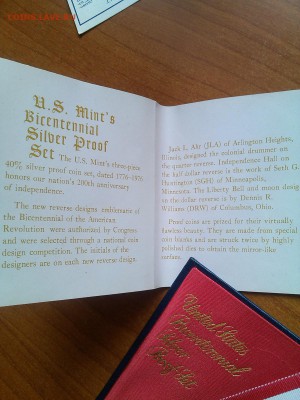 U.S. Mint's
Bicentennial
Silver Proof
Set The U.S. Mint's three-piece
40% silver proof coin set, dated 1776-1976,
honors our nation's 200th anniversary
of independence.
The new reverse designs emblematic of
the Bicentennial of the American
Revolution were authorized by Congress
and were selected through a national coin
design competition. The initials of the
designers are on each new reverse design.
Jack L. Ahr (JLA) of Arlington Heights,
Illinois, designed the colonial drummer on
the quarter reverse. Independence Hall on
the half dollar reverse is the work of Seth G.
Huntington (SGH) of Minneapolis,
Minnesota. The Liberty Bell and moon design
on the dollar reverse is by Dennis R.
Williams (DRW) of Columbus, Ohio.
Proof coins are prized for their virtually
flawless beauty. They are made from special
coin blanks and are struck twice by highly
polished dies to obtain the mirror-like
surface.
United States
Bicentennial
Silver
Proof Set